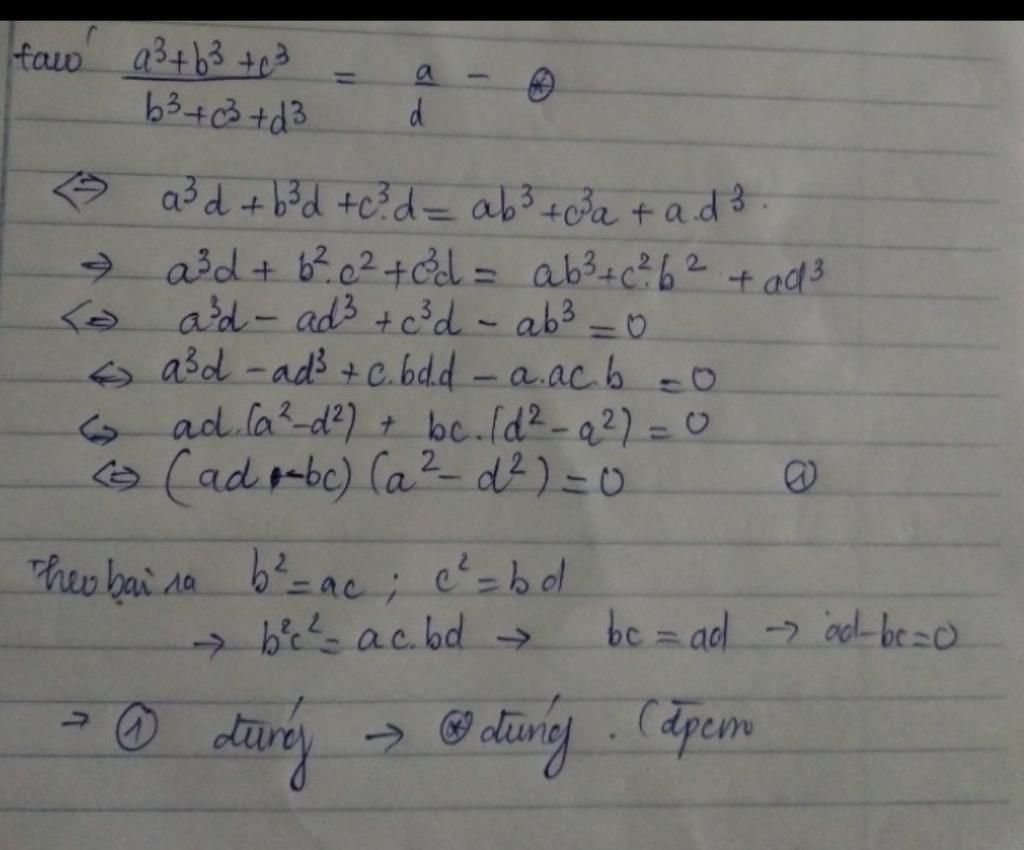 ta có a³+b³+c³ / b³+c³+d³ = a/d - ⊛
<=> a³d + b³d + c³.d = ab³ + c³a + a.d³.
=> a³d + b².c² + c³d = ab³ + c².b² + ad³
<=> a³d - ad³ + c³d - ab³ = 0
<=> a³d - ad³ + c.bd.d - a.ac.b = 0
<=> ad.(a²-d²) + bc.(d²-a²) = 0
<=> (ad - bc) (a² - d²) = 0 ①
Theo bài ra b² = ac ; c² = bd
→ b²c² = ac.bd → bc = ad → ad-bc=0
→ ① đúng → ⊛ đúng . (đpcm